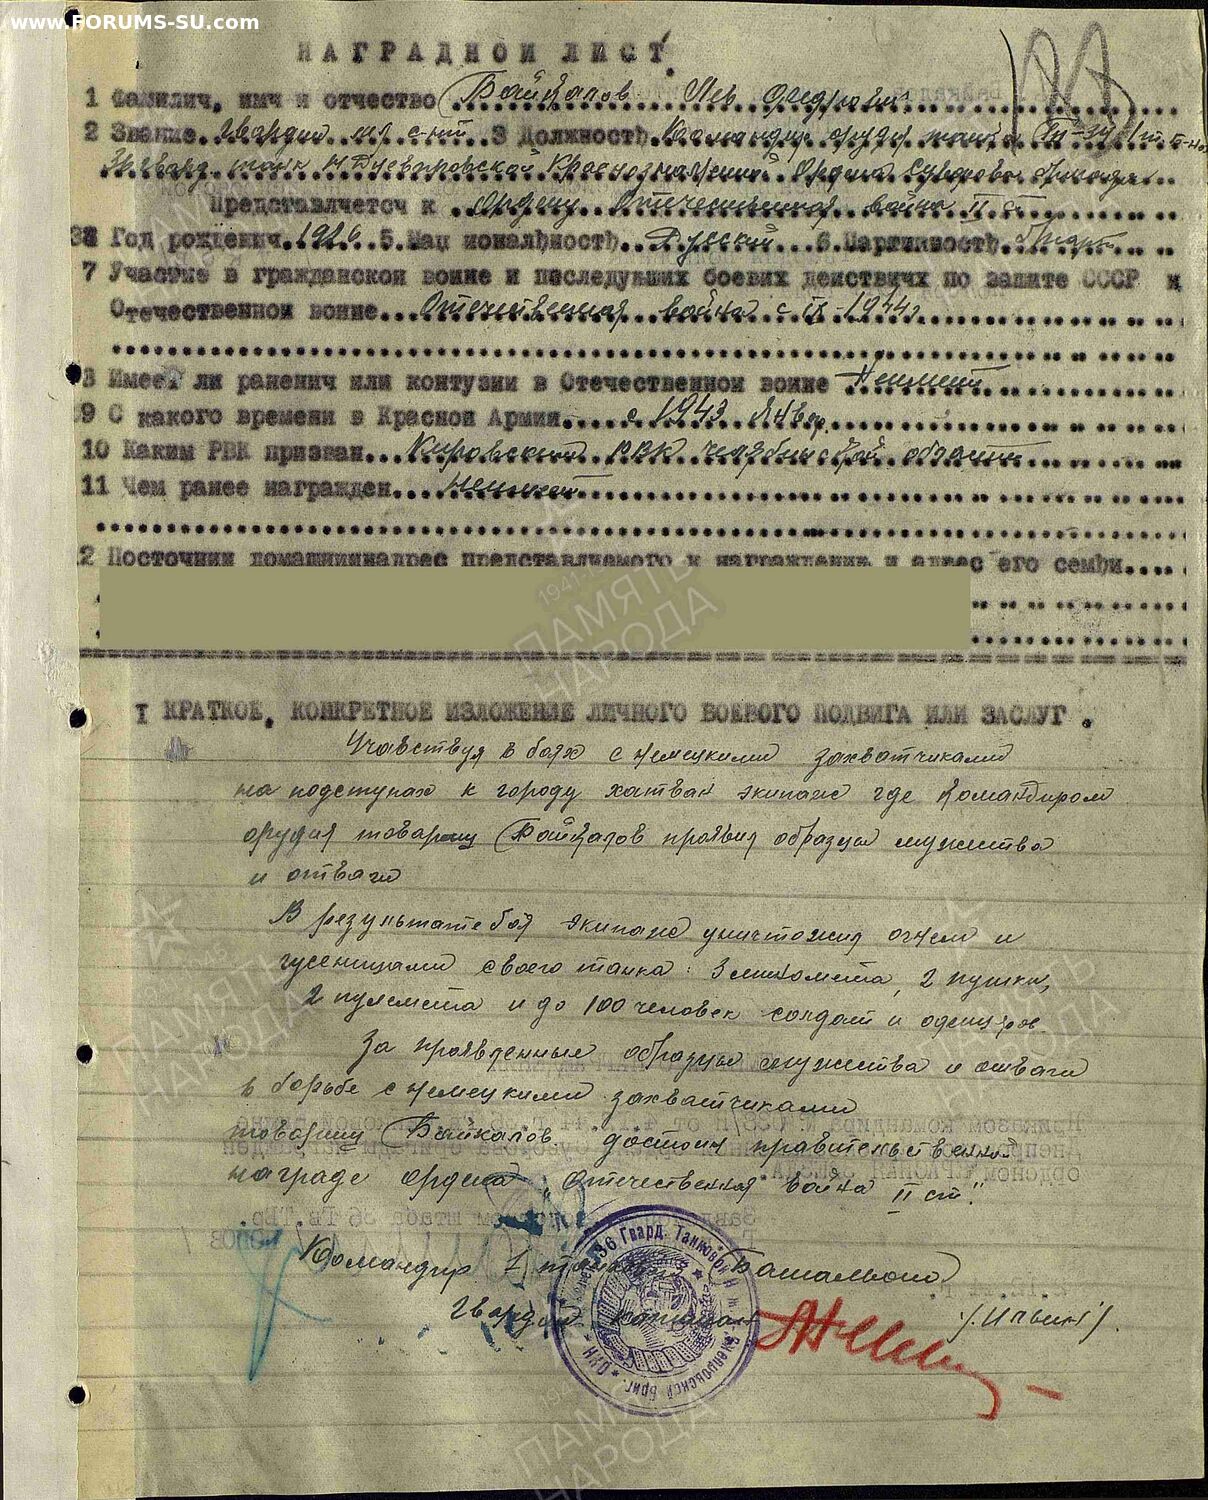 www.FORUMS-SU.com
НАГРАДНОИ ЛИСТ.
1 Фамилич, имч и отчество Байкалов Лев
2 Звание Гвардии мл с-нт 3 Должность Командир орудия танка Тп-34 1 т. б-на
36 гвард. танк. Н Днепровской Краснознаменной Ордена Суворова бригады
Представлчетсч к Ордену Отечественная война II ст
Год рождеич 1926 5. Нац иональность Русский 6. Партийность
7 Участие в гражданскои воине и последувших боевих деиствичх по защите СССР и
Отечественнои воине Отечественная война с IX-1944г
8 Имеет ли раненич или контузии в Отечественнои воине Не имеет
9 С какого времени в Краснои Армии с 1943 Январ.
10 Каким РВК призван Кировский РВК Челябинской области
11 Чем ранее награжден Не имеет
12 Посточнии домашниинадрес представлчемого к награждению и адрес его семьи
I КРАТКОЕ, КОНКРЕТНОЕ ИЗЛОЖЕНИЕ ЛИЧНОГО БОЕВОГО ПОДВИГА ИЛИ ЗАСЛУГ.
Учавствуя в боях с немецкими захватчиками
на подступах к городу хатван экипаж где командиром
орудия товарищ Байкалов проявил образцы мужества
и отваги
В результате боя экипаж уничтожил огнем и
гусеницами своего танка: 3 миномета, 2 пушки,
2 пулемета и до 100 человек солдат и офицеров
За проявленные образцы мужества и отваги
в борьбе с немецкими захватчиками
товарищ Байкалов достоин правительственной
награде ордена „Отечественная война II ст."
Командир 1 танков. Батальона
Гвардии капитан /Ильин/.
36 Гвард. Танковой Н Днепровской Бриг. * НКО
1941-1945
ПАМЯТЬ
НАРОДА